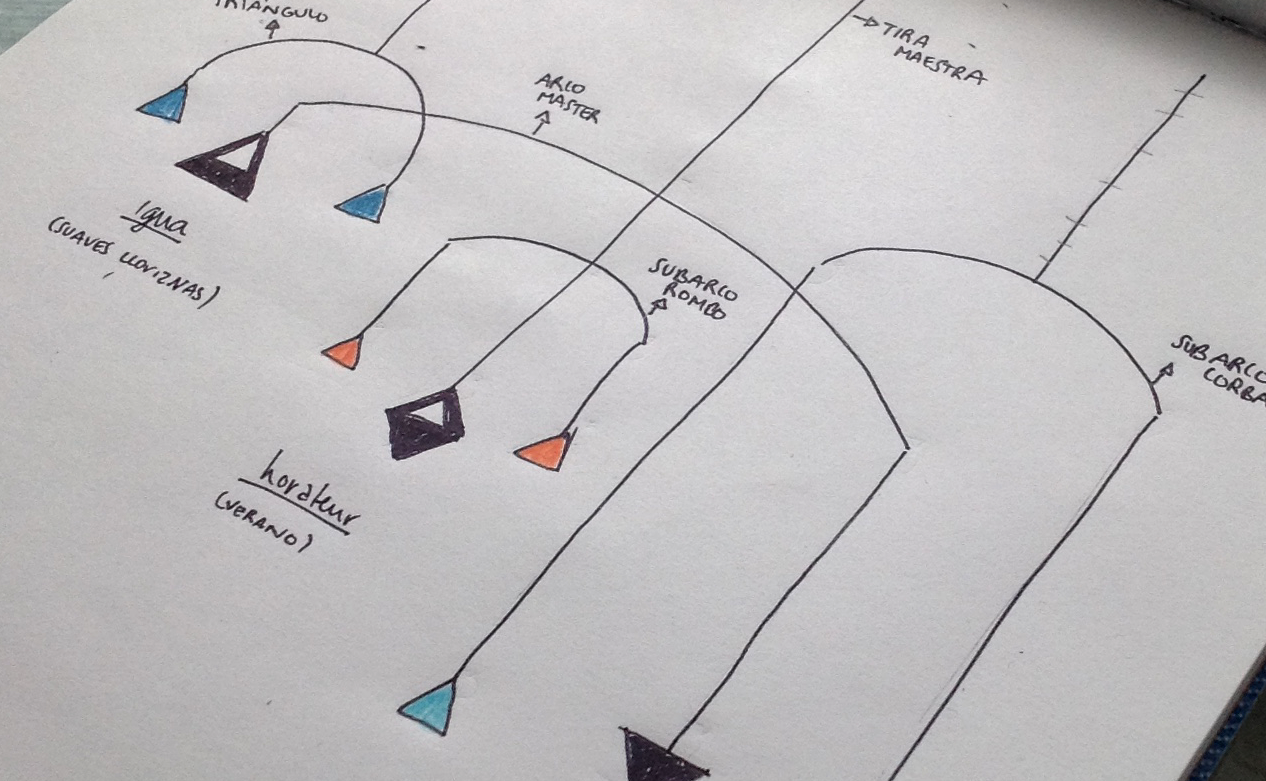 TRIÁNGULO
TIRA
MAESTRA
ARCO
MASTER
igua
(SUAVES LLOVIZNAS)
SUBARCO
ROMBO
SUBARCO
horateur
(VERANO)